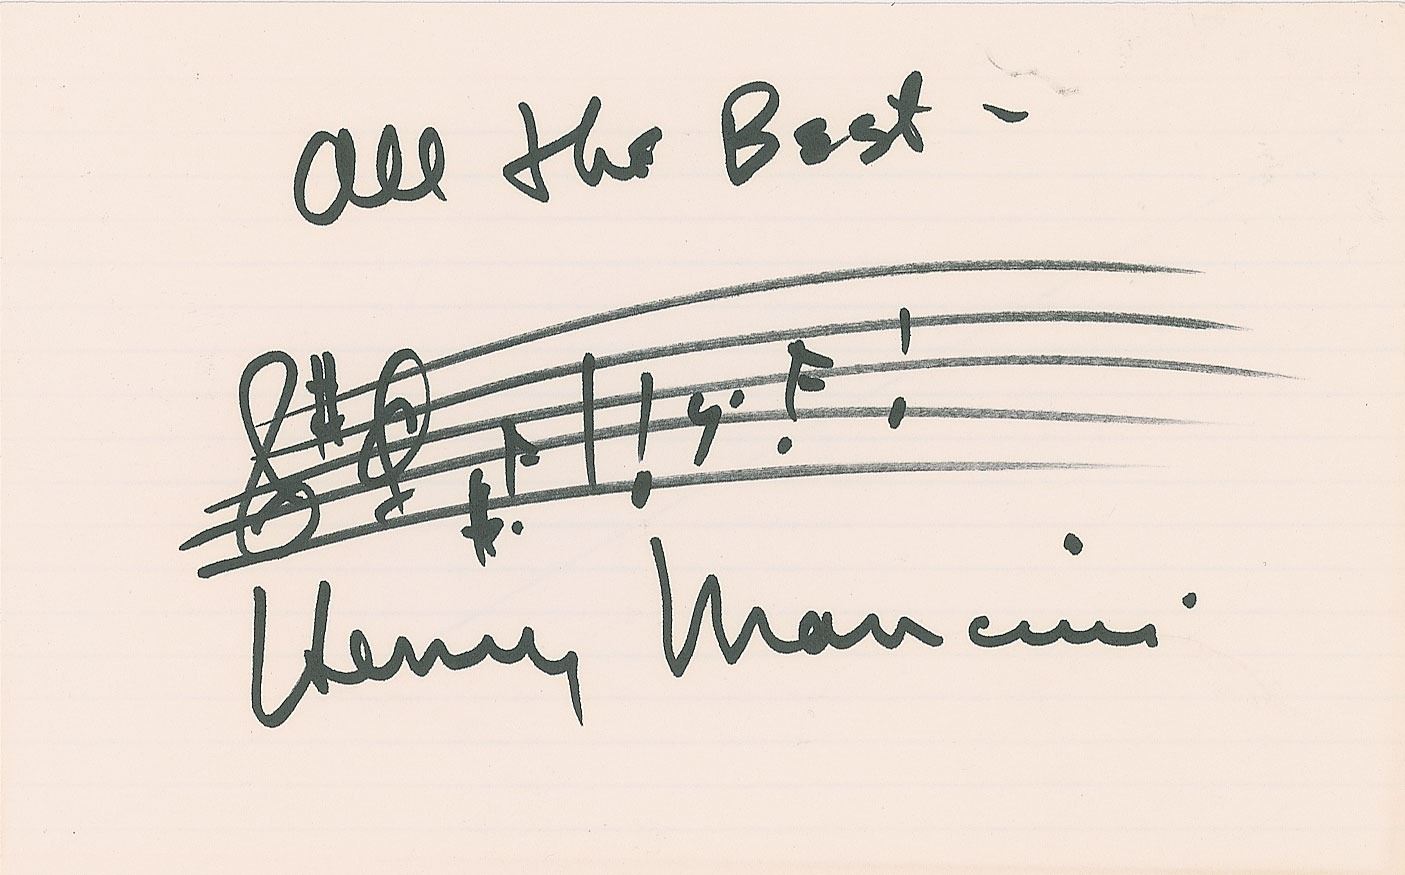 All the Best -
Henry Mancini